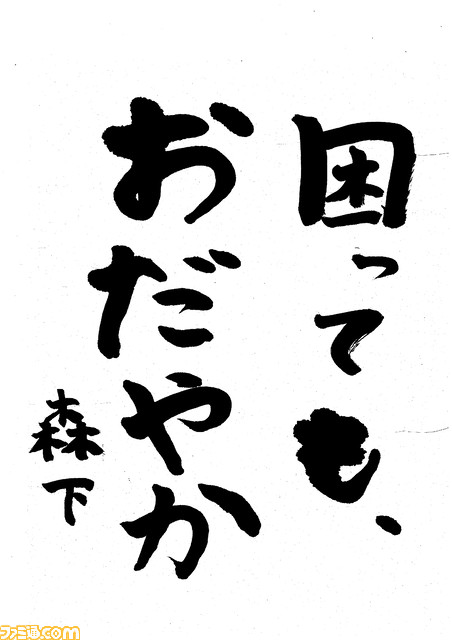 困っても、
おだやか
森下
ファミ通.com